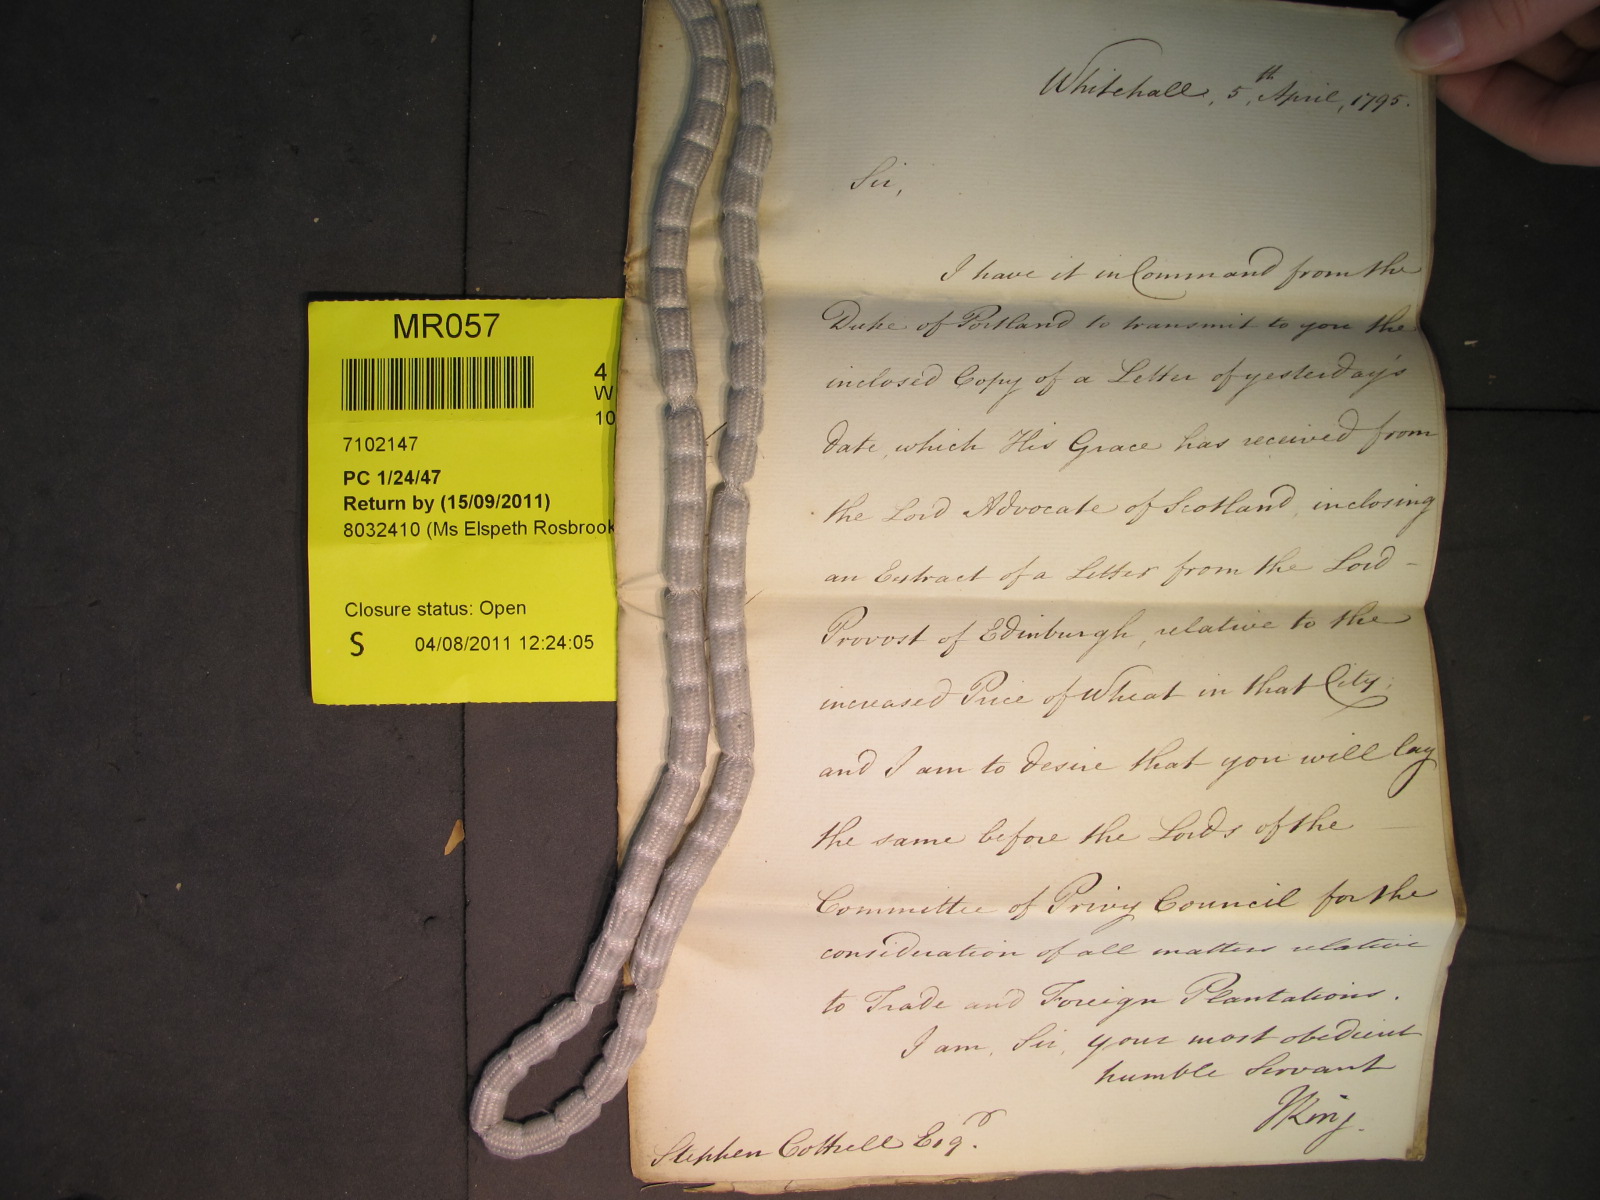 MR057
4
W
10
7102147
PC 1/24/47
Return by (15/09/2011)
8032410 (Ms Elspeth Rosbrook
Closure status: Open
S 04/08/2011 12:24:05
Whitehall, 5th April, 1795.
Sir,
I have it in Command from the
Duke of Portland to transmit to you the
inclosed Copy of a Letter of yesterday's
date, which His Grace has received from
the Lord Advocate of Scotland, inclosing
an Extract of a Letter from the Lord -
Provost of Edinburgh, relative to the
increased Price of Wheat in that City;
and I am to desire that you will lay
the same before the Lords of the
Committee of Privy Council for the
consideration of all matters relative
to Trade and Foreign Plantations.
I am, Sir, your most obedient
humble Servant
J King.
Stephen Cottrell Esqr.